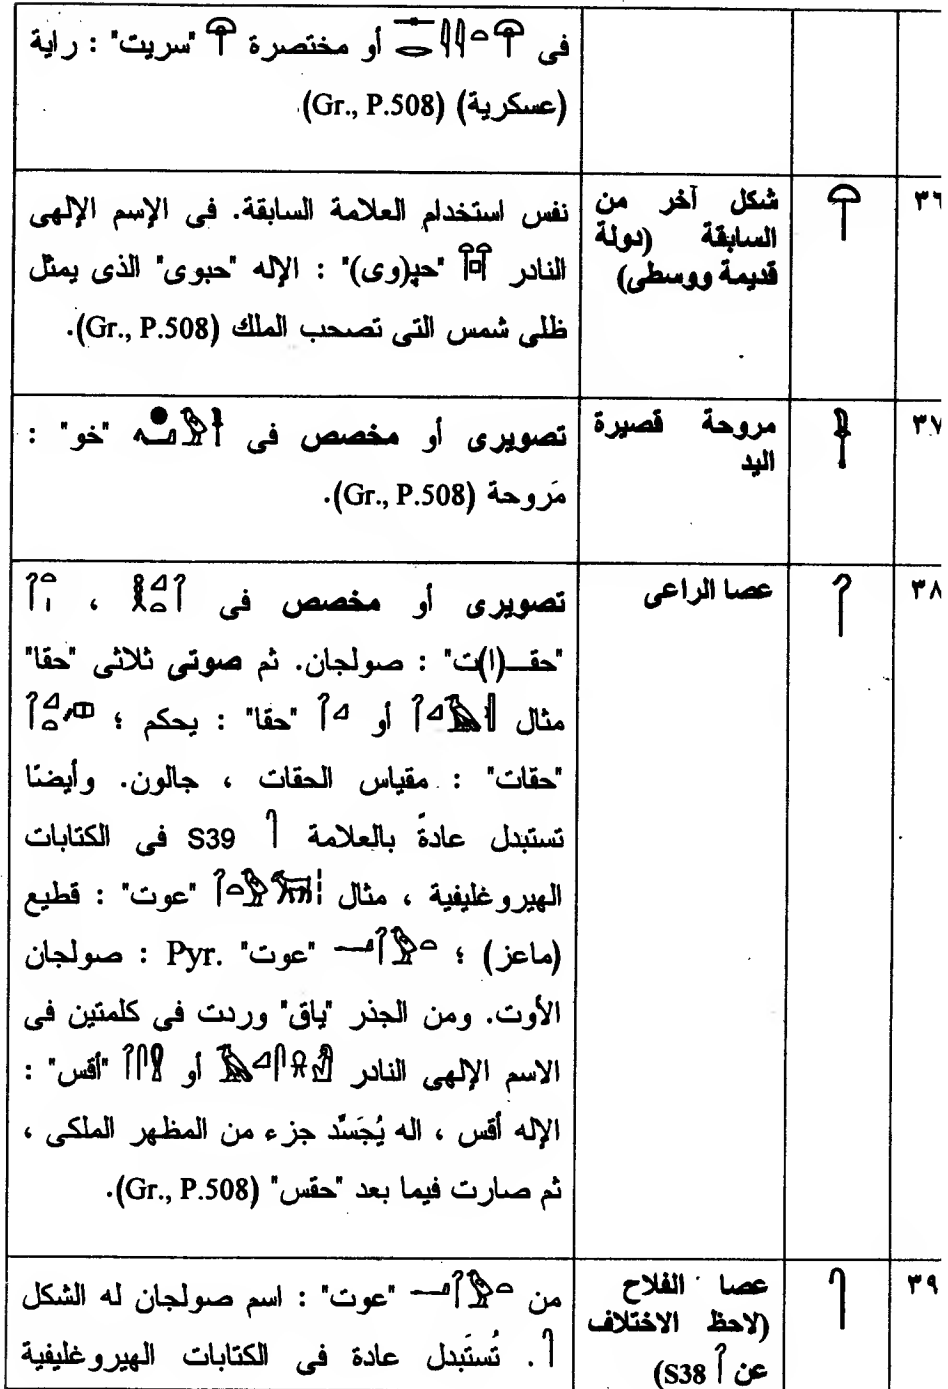 فى 𓋸𓏏𓇌𓂋𓋴 أو مختصرة 𓋸 "سريت" : راية
(عسكرية) (Gr., P.508).
٣٦
شكل آخر من
السابقة (دولة
قديمة ووسطى)
نفس استخدام العلامة السابقة. فى الإسم الإلهى
النادر "حپ(وى)" : الإله "حبوى" الذى يمثل
ظلى شمس التى تصحب الملك (Gr., P.508).
٣٧
مروحة قصيرة
اليد
تصويرى أو مخصص فى "خو" :
مَروحة (Gr., P.508).
٣٨
عصا الراعى
تصويرى أو مخصص فى ،
"حقـ(ا)ت" : صولجان. ثم صوتى ثلاثى "حقا"
مثال أو "حقا" : يحكم ؛
"حقات" : مقياس الحقات ، جالون. وأيضًا
تستبدل عادةً بالعلامة 𓋿 S39 فى الكتابات
الهيروغليفية ، مثال "عوت" : قطيع
(ماعز) ؛ "عوت" Pyr. : صولجان
الأوت. ومن الجذر "ياق" وردت فى كلمتين فى
الاسم الإلهى النادر أو "أقس" :
الإله أقس ، اله يُجَسَّد جزء من المظهر الملكى ،
ثم صارت فيما بعد "حقس" (Gr., P.508).
٣٩
عصا الفلاح
(لاحظ الاختلاف
عن 𓋾 S38)
من "عوت" : اسم صولجان له الشكل
𓋿. تُستَبدل عادة فى الكتابات الهيروغليفية